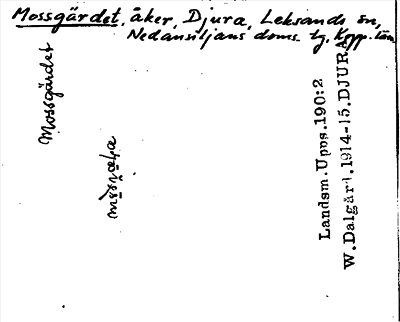 Mossgärdet, åker, Djura, Leksands sn,
Nedansiljans doms. tg, Kopp. län
Mossgärdet
Landsm. Upps. 190:2
W. Dalgård. 1914-15. DJURA